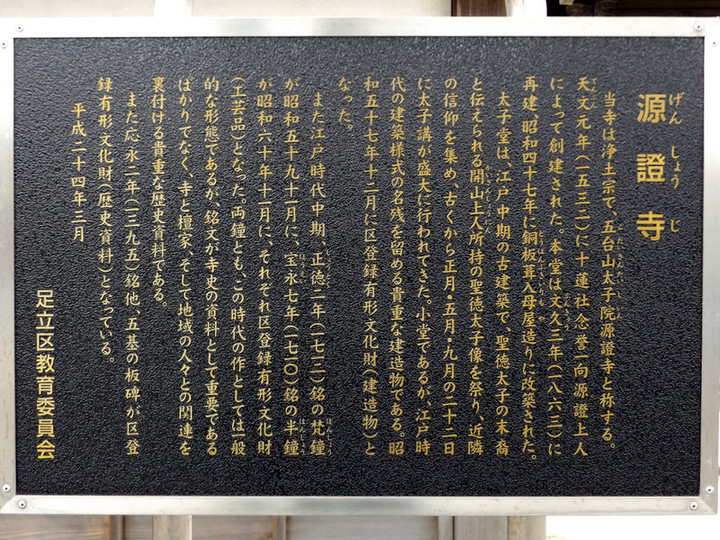 源證寺
げんしょうじ
当寺は浄土宗で、五台山太子院源證寺と称する。
天文元年(一五三二)に十蓮社念誉一向源證上人
によって創建された。本堂は文久三年(一八六三)に
再建、昭和四十七年に銅板葺入母屋造りに改築された。
太子堂は、江戸中期の古建築で、聖徳太子の末裔
と伝えられる開山上人所持の聖徳太子像を祭り、近隣
の信仰を集め、古くから正月・五月・九月の二十二日
に太子講が盛大に行われてきた。小堂であるが、江戸時
代の建築様式の名残を留める貴重な建造物である。昭
和五十七年十二月に区登録有形文化財(建造物)と
なった。
また江戸時代中期、正徳二年(一七一二)銘の梵鐘
が昭和五十九十一月に、宝永七年(一七一〇)銘の半鐘
が昭和六十年十一月に、それぞれ区登録有形文化財
(工芸品)となった。両鐘とも、この時代の作としては一般
的な形態であるが、銘文が寺史の資料として重要である
ばかりでなく、寺と檀家、そして地域の人々との関連を
裏付ける貴重な歴史資料である。
また応永二年(一三九五)銘他、五基の板碑が区登
録有形文化財(歴史資料)となっている。
平成二十四年三月
足立区教育委員会